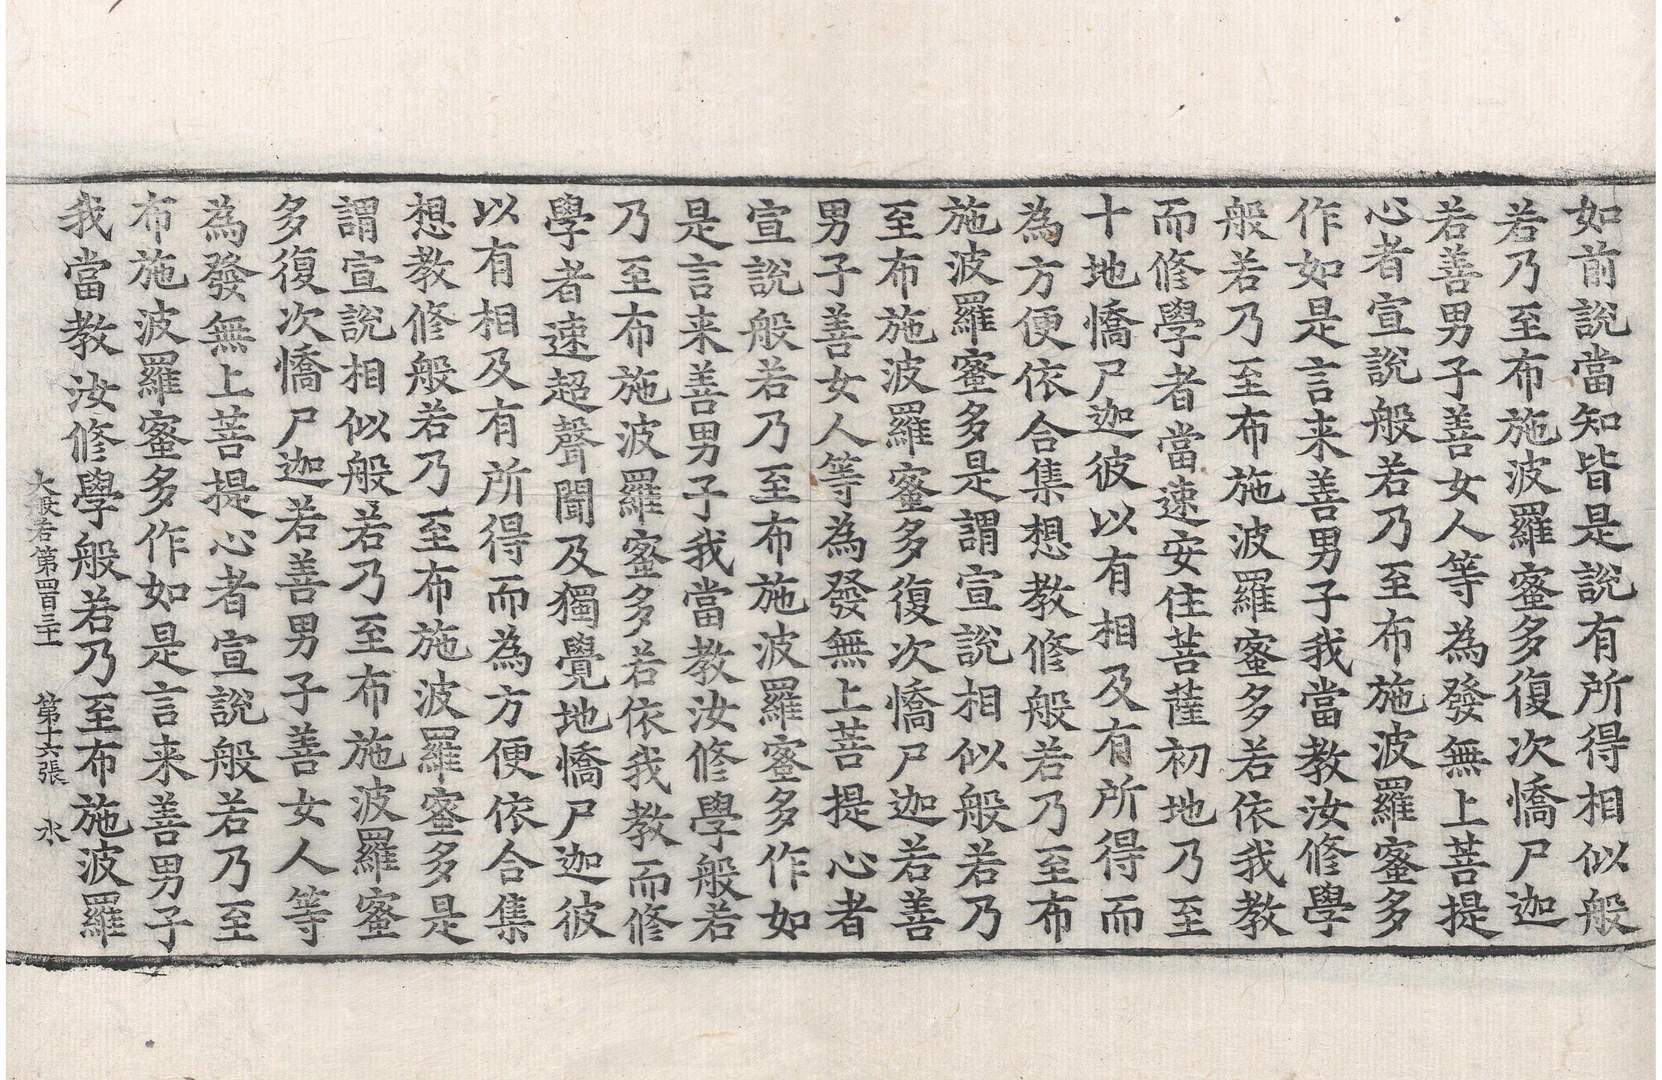 如前說當知皆是說有所得相似般
若乃至布施波羅蜜多復次憍尸迦
若善男子善女人等為發無上菩提
心者宣說般若乃至布施波羅蜜多
作如是言来善男子我當教汝修學
般若乃至布施波羅蜜多若依我教
而修學者當速安住菩薩初地乃至
十地憍尸迦彼以有相及有所得而
為方便依合集想教修般若乃至布
施波羅蜜多是謂宣說相似般若乃
至布施波羅蜜多復次憍尸迦若善
男子善女人等為發無上菩提心者
宣說般若乃至布施波羅蜜多作如
是言来善男子我當教汝修學般若
乃至布施波羅蜜多若依我教而修
學者速超聲聞及獨覺地憍尸迦彼
以有相及有所得而為方便依合集
想教修般若乃至布施波羅蜜多是
謂宣說相似般若乃至布施波羅蜜
多復次憍尸迦若善男子善女人等
為發無上菩提心者宣說般若乃至
布施波羅蜜多作如是言来善男子
我當教汝修學般若乃至布施波羅
大般若第四百三十 第十六張 水